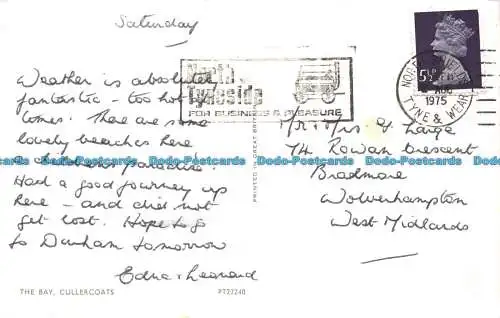 Saturday
Weather is absolutely
fantastic - too hot
There are some
lovely beaches here
a childrens paradise.
Had a good journey up
here - and did not
get lost. Hope to go
to Durham tomorrow
Edna + Leonard
THE BAY, CULLERCOATS
PT27240
North
Tyneside
FOR BUSINESS & PLEASURE
5½P
AUG
1975
TYNE & WEAR
PRINTED IN GREAT
Mr & Mrs G Large
74 Rowan Crescent
Bradmore
Wolverhampton
West Midlands
Dodo-Postcards Dodo-Postcards Dodo-Postcards